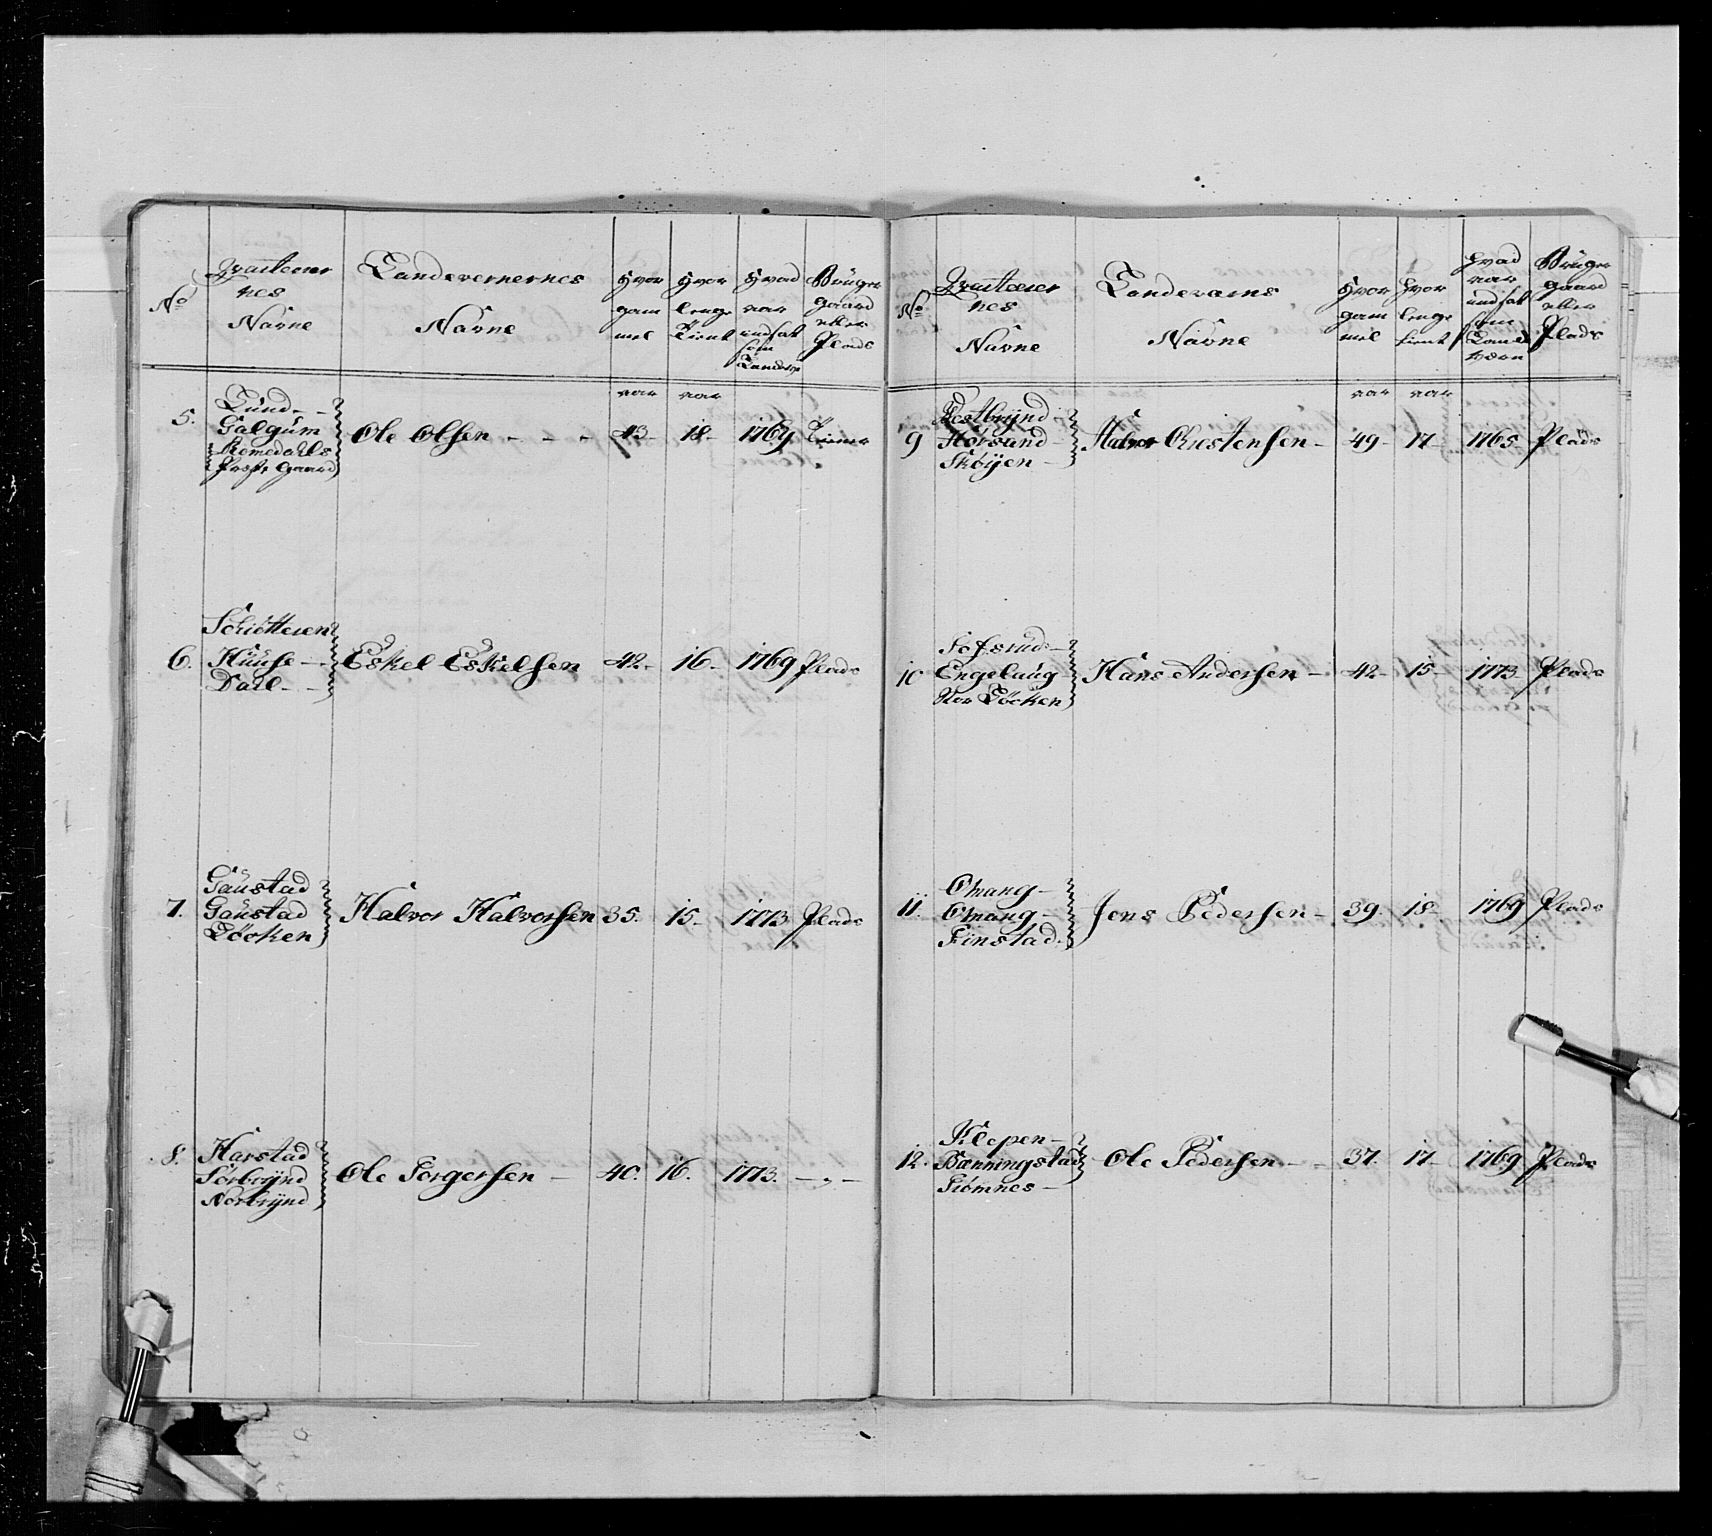 No
Qvarteer
nes
Navne
Landevernernes
Navne
Hvor
gam
mel
Hvor
lenge
Tient
Hvad
var
undsat
som
Landev
Bruger
gaard
eller
Plads
aar aar
5. Lund -
Galgum
Romedahls
Præste Gaard
Ole Olsen - - - 43. 18. 1769 Tiener
6. Schiøtteren
Huuse -
Dael -
Eskel Eskelsen 42. 16. 1769 Plads
7. Gaustad
Gaustad
Løcken
Halvor Halvorsen 35. 15. 1773 Plads
8. Harstad
Sørbrÿnd
Norbrÿnd
Ole Torgersen - 40. 16. 1773. - " -
No
Qvarteer
nes
Navne
Landeværns
Navne
Hvor
gam
mel
Hvor
lenge
tient
Hvad
var
undsat
som
Land
værn
Bruger
gaard
eller
Plads
aar aar
9 Vestbrÿnd
Horsand -
Skøÿen -
Halvor Christensen - 49. 17 1765. Plads
10 Sofsrud -
Engelaug
Nor Løcken
Hans Andersen - 42. 15. 1773 Plads
11. Omang -
Omang -
Finstad.
Jens Pedersen - 39. 18. 1769 Plads
12. Klepen -
Bænningstad
Tiømnes -
Ole Pedersen - - 37. 17. 1769 Plads